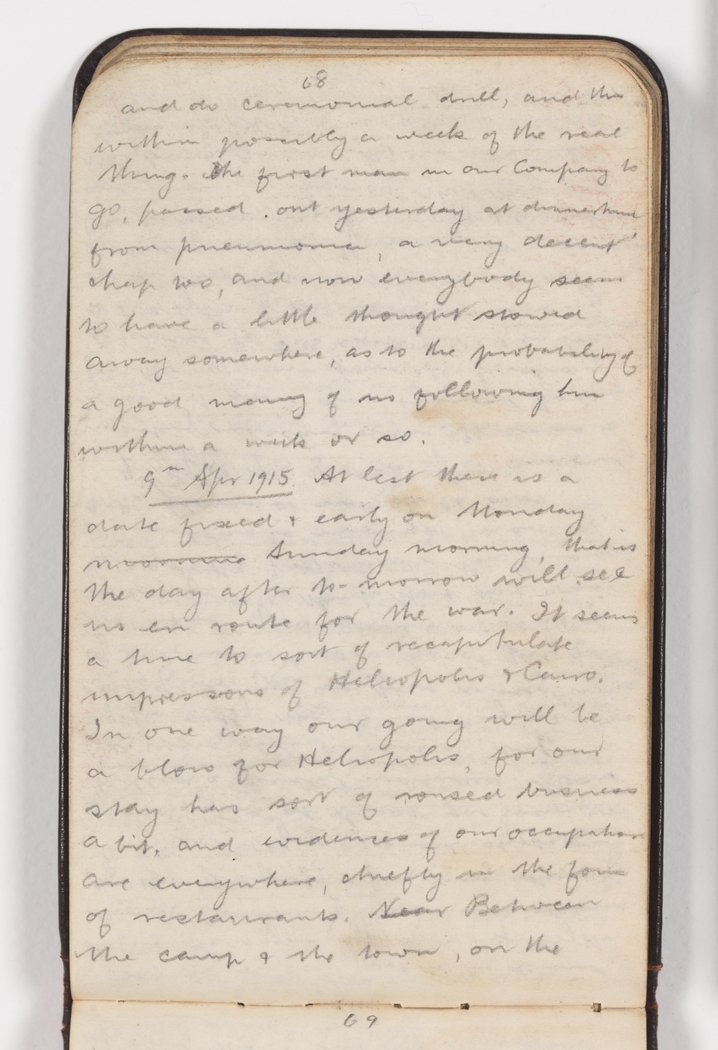 68
and do ceremonial drill, and this
within possibly a week of the real
thing. The first man in our Company to
go, passed out yesterday at dinnertime
from pneumonia, a very decent
chap too, and now everybody seem
to have a little thought stowed
away somewhere, as to the probability of
a good many of us following him
within a week or so.
9th Apr 1915 At last there is a
date fixed & early on Monday
morning Sunday morning, that is
the day after to-morrow will see
us en route for the war. It seems
a time to sort of recapitulate
impressions of Heliopolis & Cairo.
In one way our going will be
a blow for Heliopolis, for our
stay has sort of roused business
a bit, and evidences of our occupation
are everywhere, chiefly in the form
of restaurants. Near Between
the camp & the town, on the
69